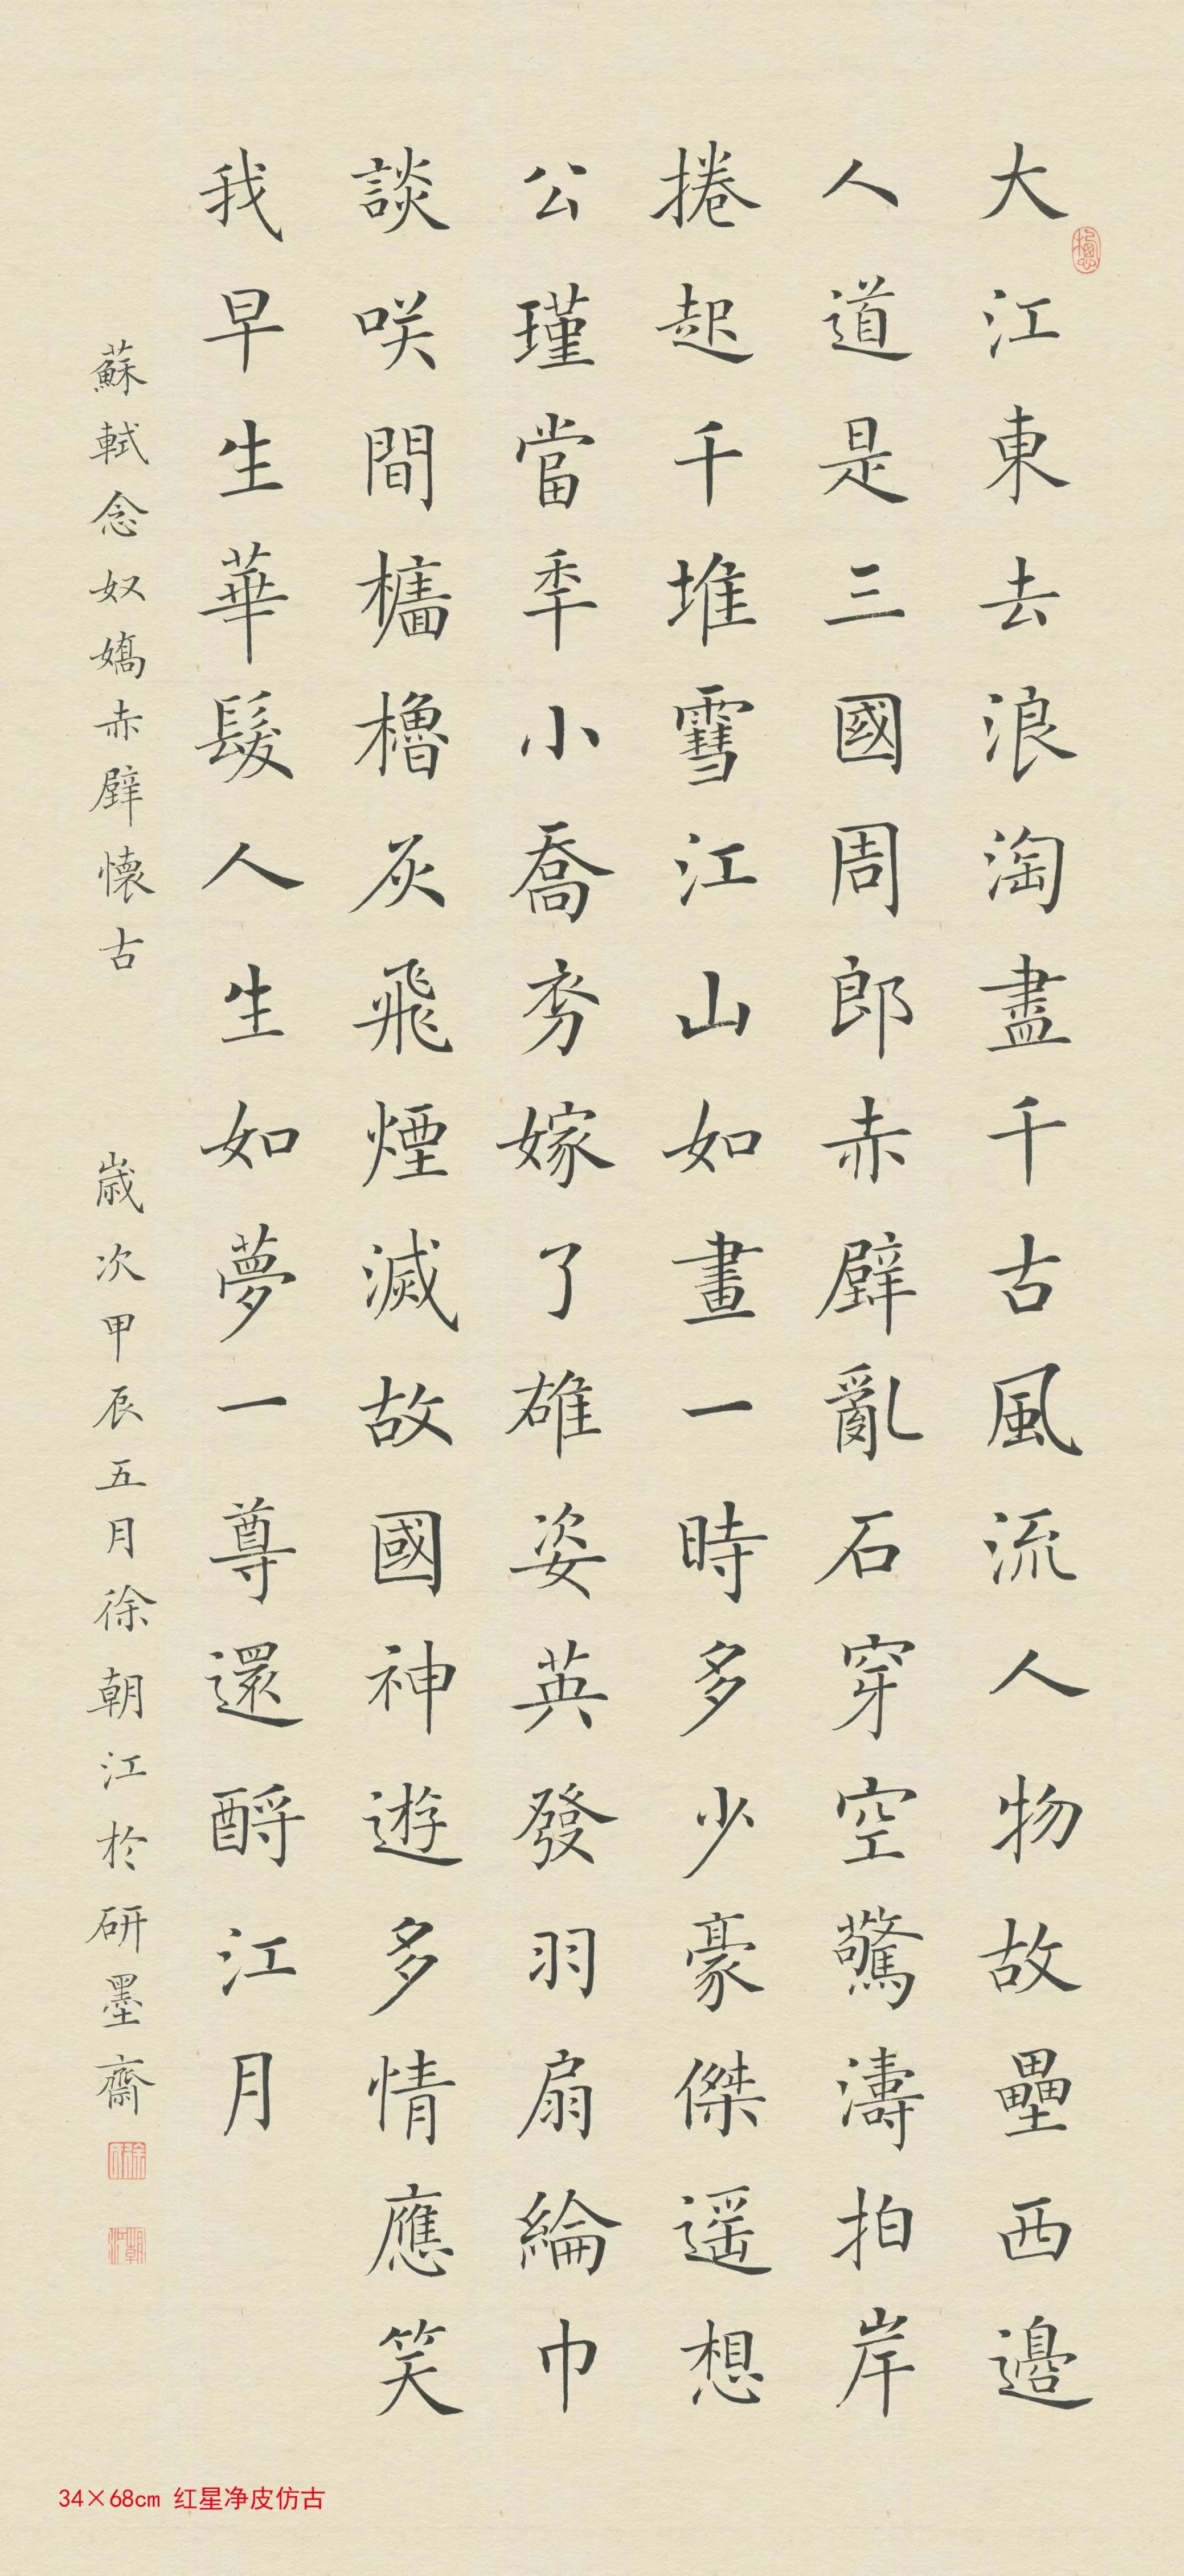 大江東去浪淘盡千古風流人物故壘西邊
人道是三國周郎赤壁亂石穿空驚濤拍岸
捲起千堆雪江山如畫一時多少豪傑遥想
公瑾當季小喬秀嫁了雄姿英發羽扇綸巾
談咲間檣櫓灰飛煙滅故國神遊多情應笑
我早生華髮人生如夢一尊還酹江月
蘇軾念奴嬌赤壁懷古 歲次甲辰五月徐朝江於研墨齋
34×68cm 红星净皮仿古